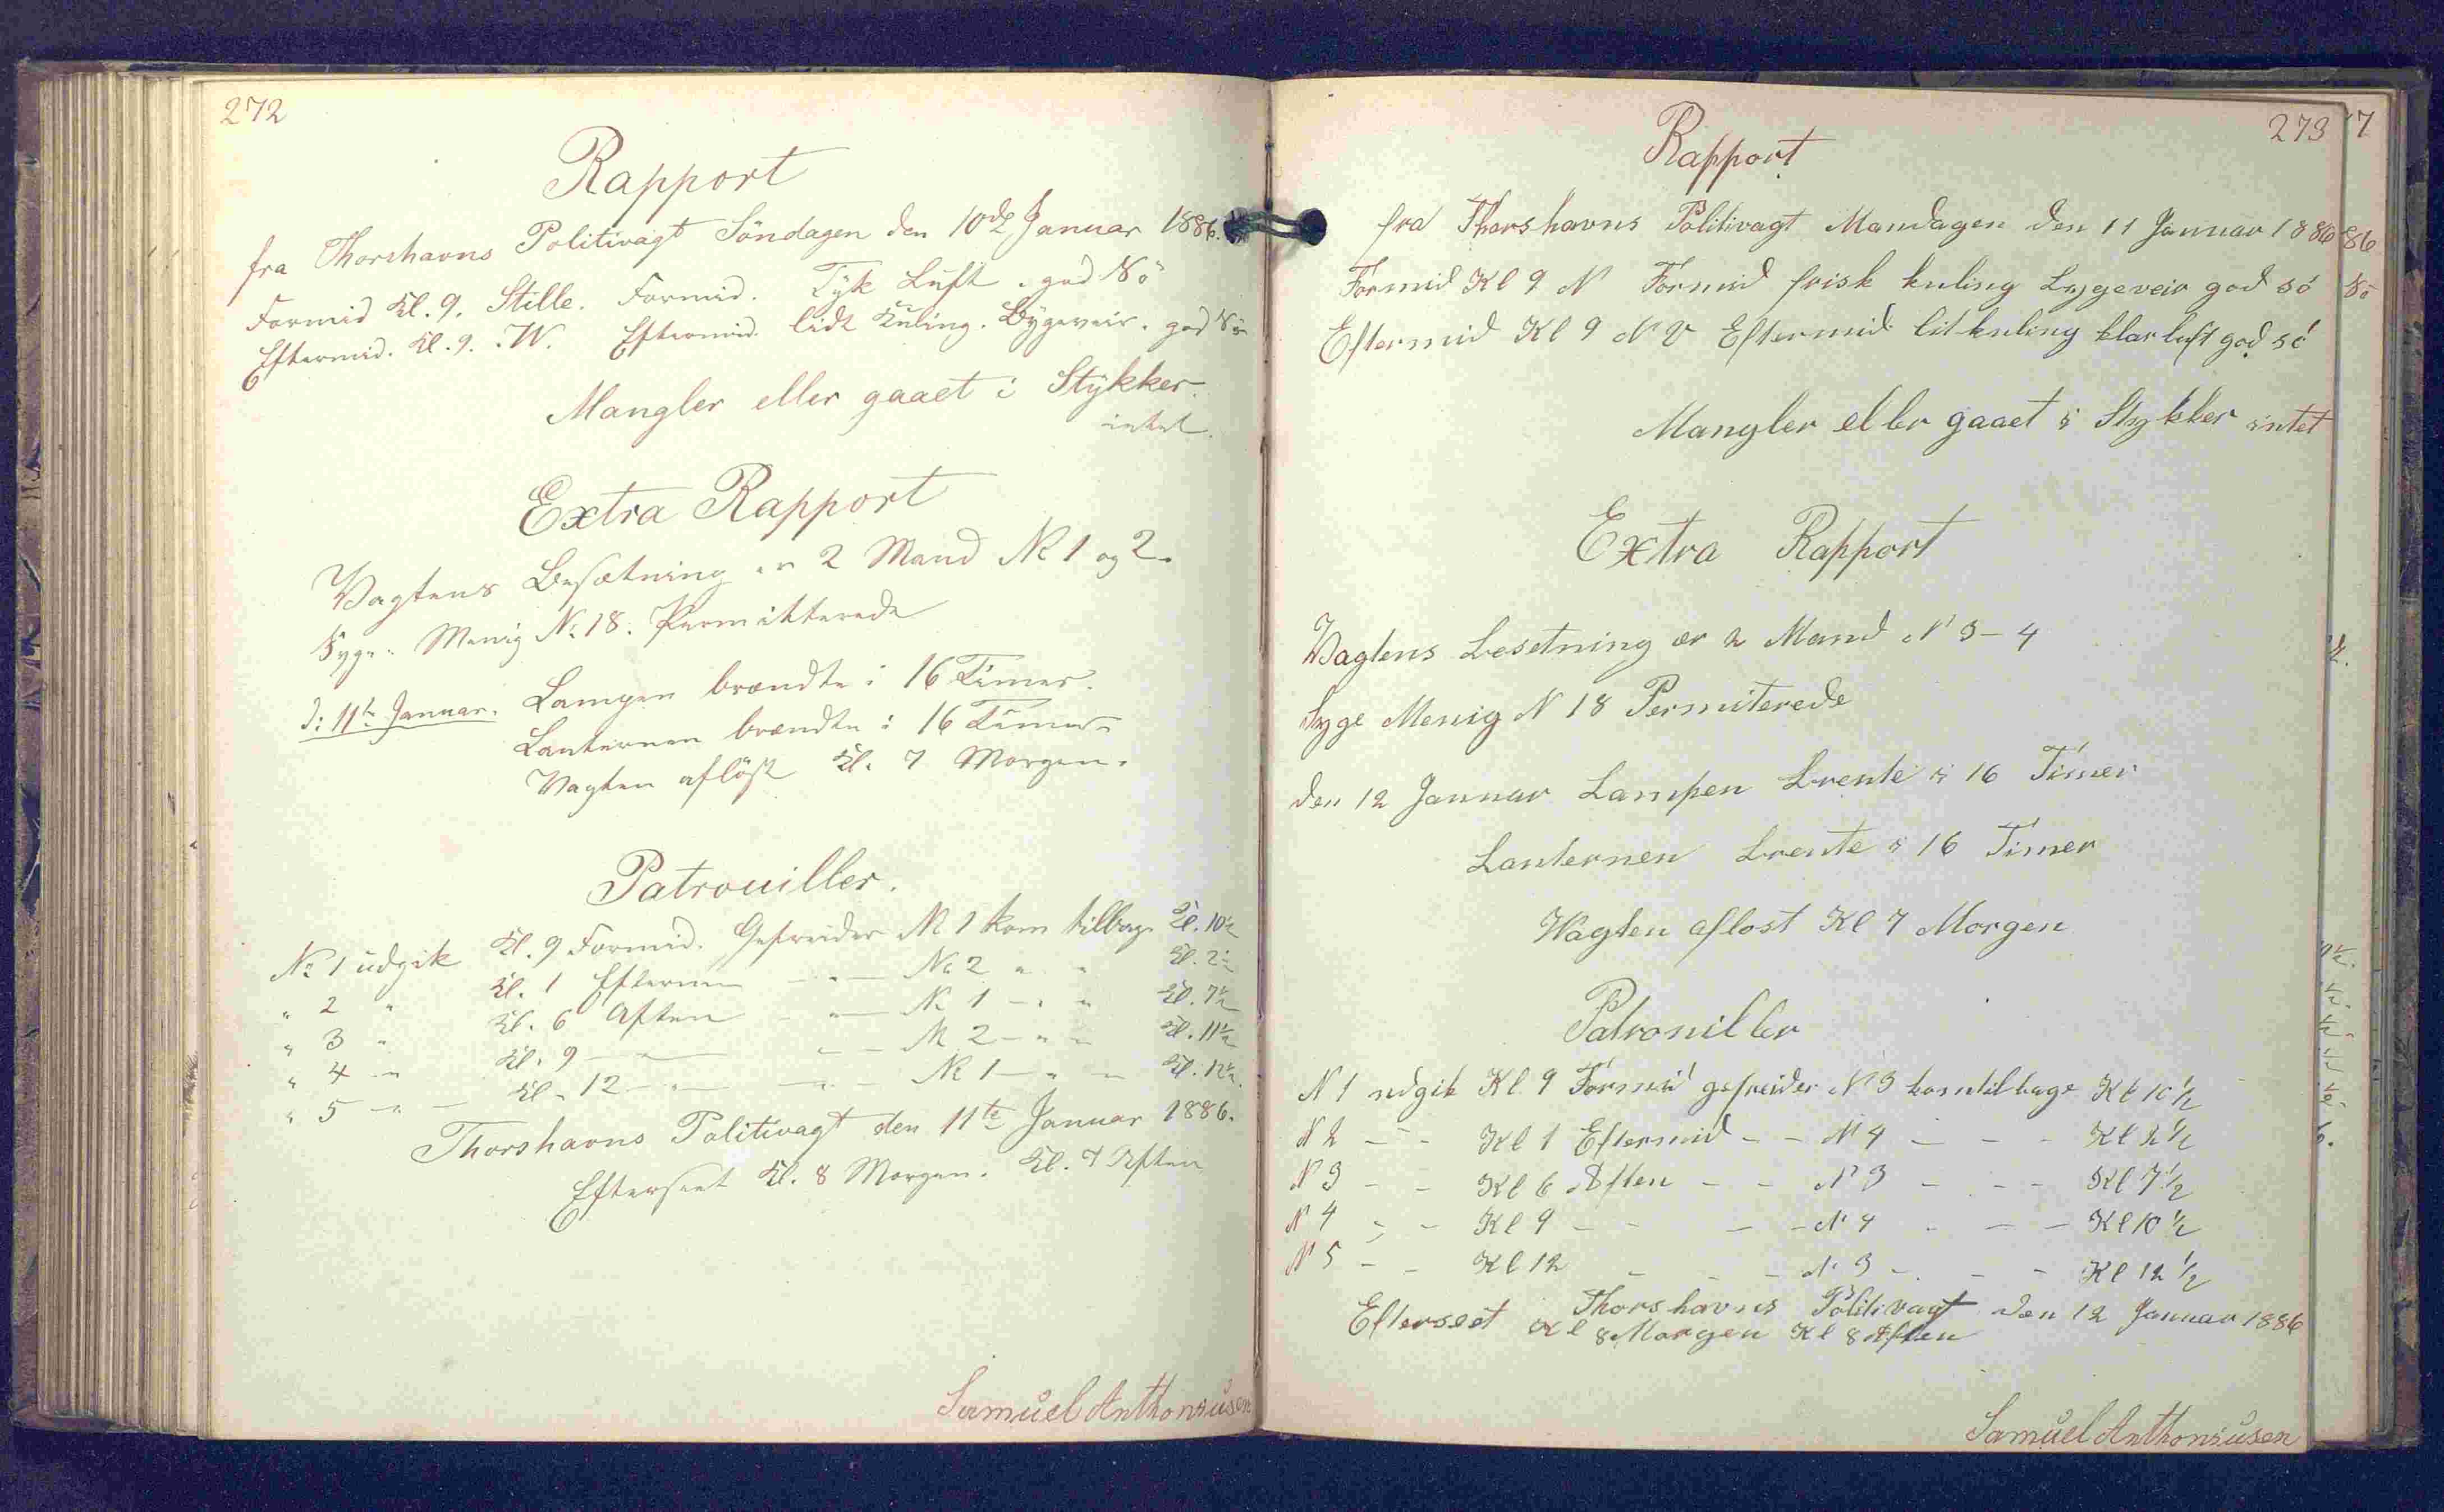 272
Rapport
fra Thorshavns Politivagt Söndagen den 10de Januar 1886.
Formid Kl. 9. Stille. Formid. Tyk Luft. god Sö
Eftermid. Kl. 9. W. Eftermid. lidt Kuling. Bygeveir. god Sö
Mangler eller gaaet i Stykker.
intet.
Extra Rapport
Vagtens Besætning er 2 Mand № 1 og 2.
Syge. Menig № 18. Permitterede
d: 11te Januar. Lampen brændte i 16 Timer.
Lanternen brændte i 16 Timer
Vagten aflöst Kl. 7 Morgen.
Patrouiller.
№ 1 udgik Kl. 9 Formid. Gefreider № 1 kom tilbage Kl. 10½
" 2 " Kl. 1 Efterm — " — № 2 " " Kl. 2½
" 3 " Kl. 6 Aften — " — № 1 — " " Kl. 7½
" 4 — " Kl. 9 — " — " — № 2 — " " Kl. 11½
" 5 — " — Kl. 12 — " — " — № 1 — " — Kl. 12½.
Thorshavns Politivagt den 11te Januar 1886.
Efterseet Kl. 8 Morgen. Kl. 7 Aften
Samuel Anthoniusen
273
Rapport
fra Thorshavns Politivagt Mandagen den 11 Januar 1886
Formid Kl 9 N Formid frisk kuling Bygeveir god só
Eftermid Kl 9 N V Eftermid litkuling klar luft god só
Mangler eller gaaet i Stykker intet
Extra Rapport
Vagtens besetning er 2 Mand N 3 - 4
Syge Menig N 18 Permiterede
den 12 Januar Lampen brente i 16 Timer
Lanternen brente i 16 Timer
Vagten aflost Kl 7 Morgen
Patrouiller
N 1 udgik Kl 9 Formid gefreider N 3 komtilbage Kl 10 ½
N 2 - - Kl 1 Eftermid - - N 4 - - - Kl 2 ½
N 3 - - Kl 6 Aften - - N 3 - - - Kl 7 ½
N 4 - - Kl 9 - - - - N 4 - - - Kl 10 ½
N 5 - - Kl 12 - - - N 3 - - - Kl 12 ½
Thorshavns Politivagt den 12 Januar 1886
Efterseet Kl 8 Morgen Kl 8 Aften
Samuel Anthoniusen